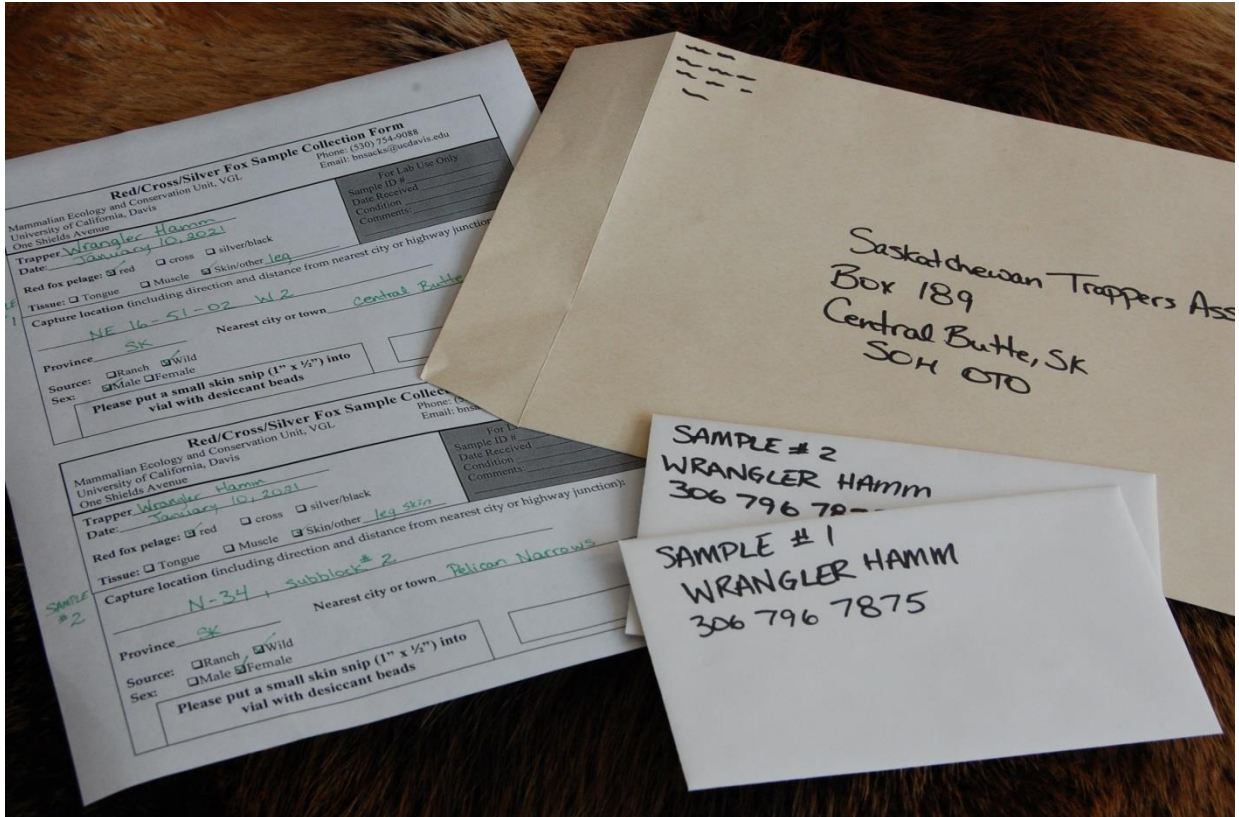 Red/Cross/Silver Fox Sample Collection Form
Mammalian Ecology and Conservation Unit, VGL
University of California, Davis
One Shields Avenue
Phone: (530) 754-9088
Email: bnsacks@ucdavis.edu
For Lab Use Only
Sample ID #
Date Received
Condition
Comments:
Trapper Wrangler Hamm
Date: January 10, 2021
Red fox pelage: red cross silver/black
Tissue: Tongue Muscle Skin/other leg
Capture location (including direction and distance from nearest city or highway junction
NE 16-51-02 W2
Nearest city or town Central Butte
Province SK
Source: Ranch Wild
Sex: Male Female
Please put a small skin snip (1" x ½") into
vial with desiccant beads
Red/Cross/Silver Fox Sample Collec
Mammalian Ecology and Conservation Unit, VGL
University of California, Davis
One Shields Avenue
Phone:
Email:
For L
Sample ID #
Date Received
Condition
Comments:
SAMPLE
#2
Trapper Wrangler Hamm
Date: January 10, 2021
Red fox pelage: red cross silver/black
Tissue: Tongue Muscle Skin/other leg skin
Capture location (including direction and distance from nearest city or highway junction):
N-34, subblock # 2
Nearest city or town Pelican Narrows
Province SK
Source: Ranch Wild
Sex: Male Female
Please put a small skin snip (1" x ½") into
vial with desiccant beads
Saskatchewan Trappers Ass
Box 189
Central Butte, SK
S0H 0T0
SAMPLE # 2
WRANGLER HAMM
306 796 78
SAMPLE # 1
WRANGLER HAMM
306 796 7875